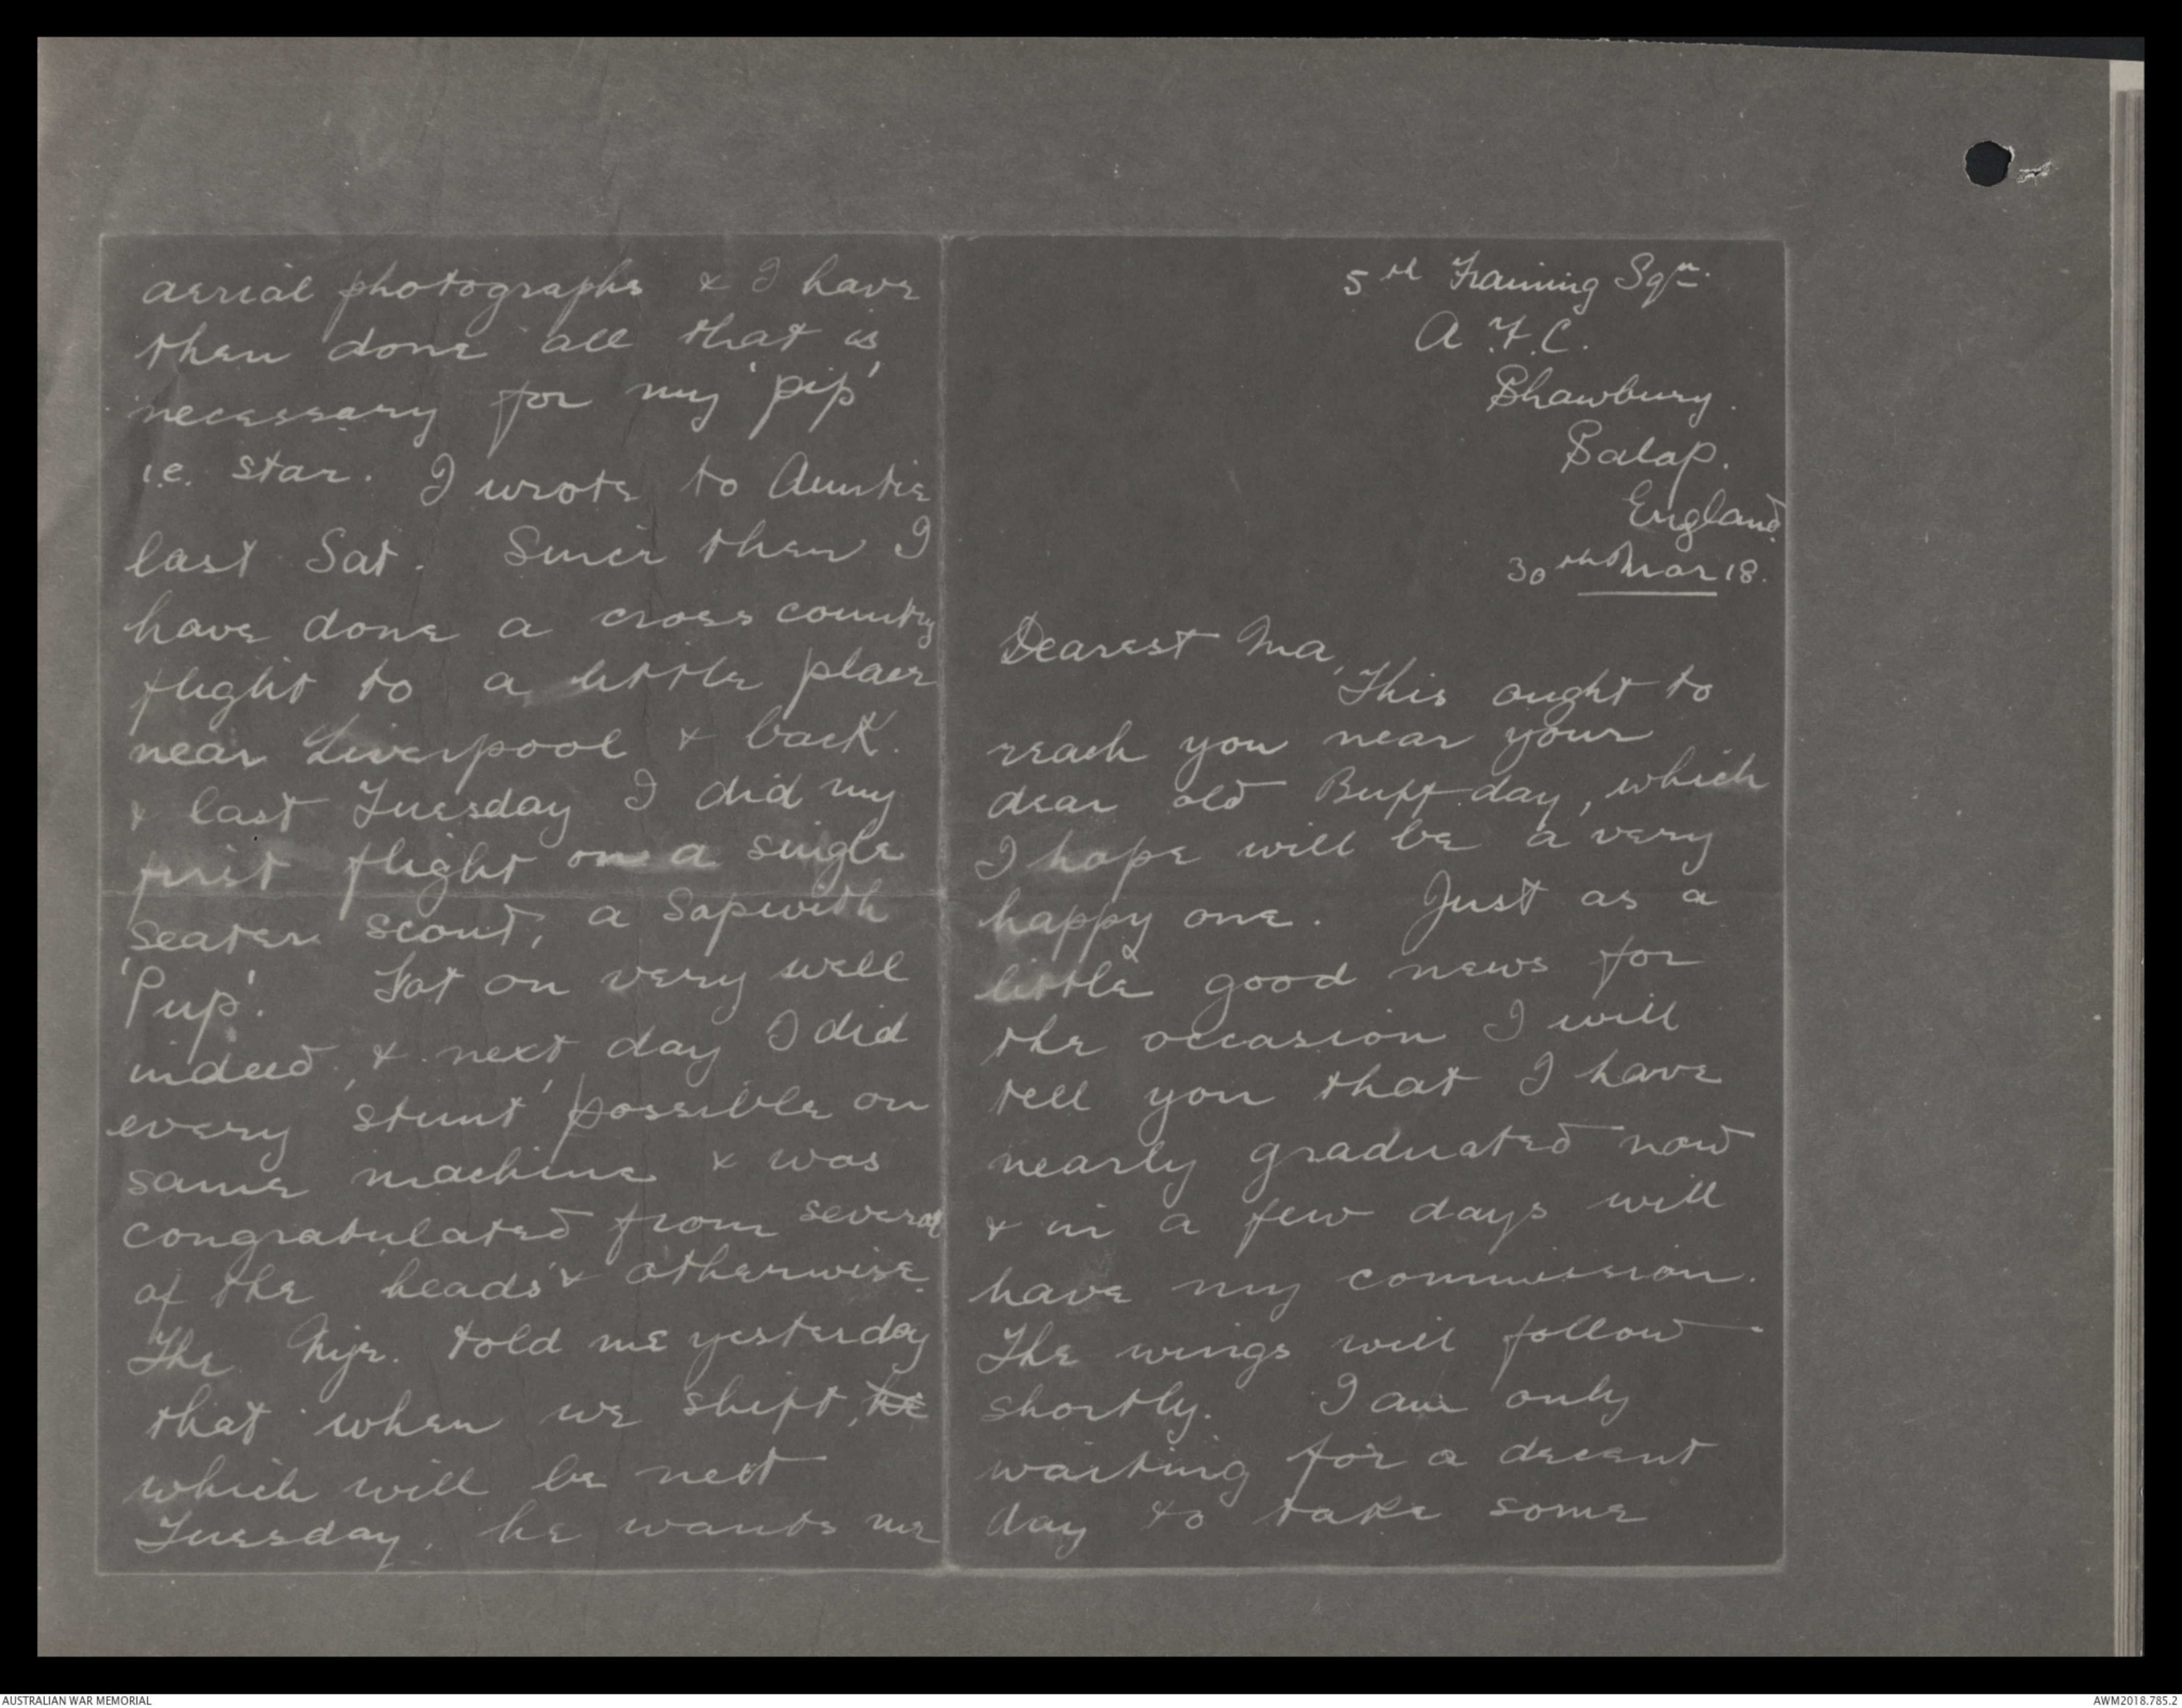 5th Training Sqn.
A.F.C.
Shawbury.
Salop.
England.
30th Mar 18.
Dearest Ma,
This ought to
reach you near your
dear old Buff-day, which
I hope will be a very
happy one. Just as a
little good news for
the occasion I will
tell you that I have
nearly graduated now
& in a few days will
have my commission.
The wings will follow
shortly. I am only
waiting for a decent
day to take some
aerial photographs & I have
then done all that is
necessary for my 'pip'
i.e. star. I wrote to Auntie
last Sat. Since then I
have done a cross country
flight to a little place
near Liverpool & back.
& last Tuesday I did my
first flight on a single
seater scout, a Sopwith
'Pup'. Got on very well
indeed, & next day I did
every 'stunt' possible on
same machine & was
congratulated from several
of the 'heads' & otherwise.
The Mjr. told me yesterday
that when we shift, he
which will be next
Tuesday, he wants me
AUSTRALIAN WAR MEMORIAL
AWM2018.785.2